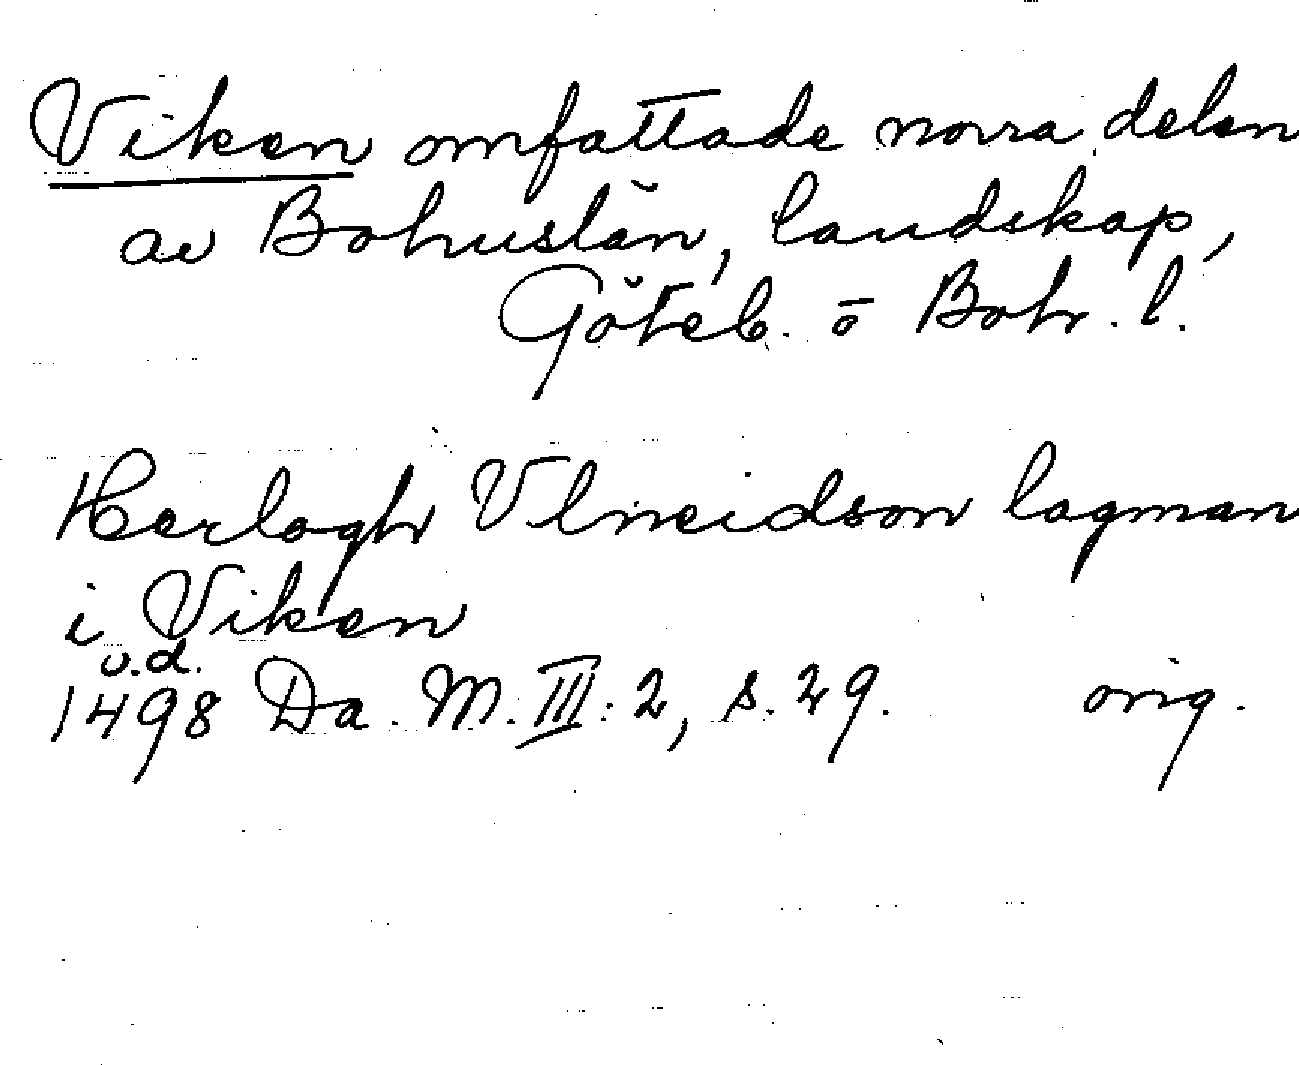 Viken omfattade norra delen
av Bohuslän, landskap,
Göteb. o Boh. l.
Herlogh Vlneidson lagman
i Viken
u.d.
1498 Da. M. III: 2, s. 29. orig.